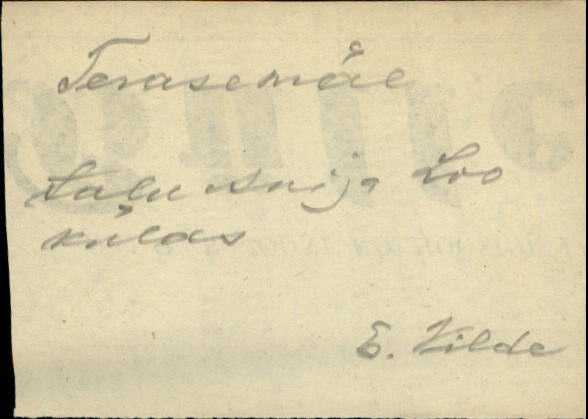 Terasemäe
Talu Anija Loo
külas
E. Vilde